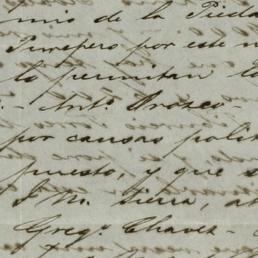 mio de la Pieda
Purepero por este n
lo permitan la
- Antº Orozco -
por causas polit
puesto, y que s
J. M. Sierra, at
Gregº Chavez -